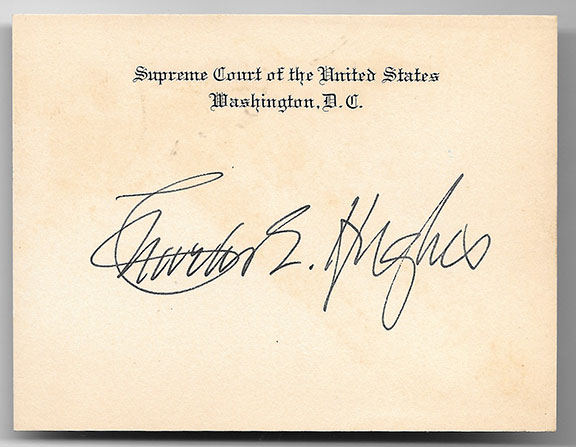 Supreme Court of the United States
Washington, D.C.
Charles E. Hughes